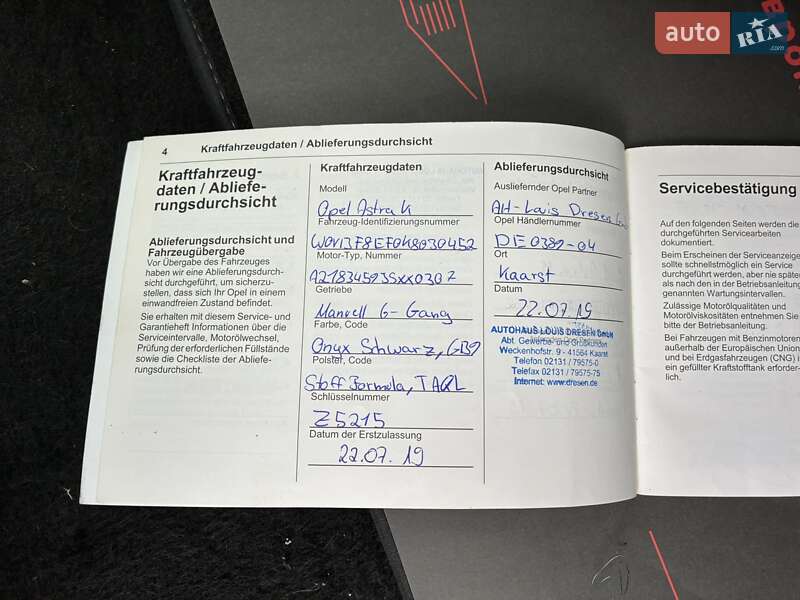 auto RIA .com
4 Kraftfahrzeugdaten / Ablieferungsdurchsicht
Kraftfahrzeug-
daten / Abliefe-
rungsdurchsicht
Ablieferungsdurchsicht und
Fahrzeugübergabe
Vor Übergabe des Fahrzeuges
haben wir eine Ablieferungsdurch-
sicht durchgeführt, um sicherzu-
stellen, dass sich Ihr Opel in einem
einwandfreien Zustand befindet.
Sie erhalten mit diesem Service- und
Garantieheft Informationen über die
Serviceintervalle, Motorölwechsel,
Prüfung der erforderlichen Füllstände
sowie die Checkliste der Abliefe-
rungsdurchsicht.
Kraftfahrzeugdaten
Modell
Opel Astra K
Fahrzeug-Identifizierungsnummer
Motor-Typ, Nummer
Getriebe
Manuell 6-Gang
Farbe, Code
Onyx Schwarz,
Polster, Code
Stoff Formula,
Schlüsselnummer
Z5215
Datum der Erstzulassung
22.07.19
Ablieferungsdurchsicht
Ausliefernder Opel Partner
AH-Louis Dresen
Opel Händlernummer
DE 0389-04
Ort
Kaarst
Datum
22.07.19
AUTOHAUS LOUIS DRESEN GmbH
Abt. Gewerbe- und Großkunden
Weckenhofstr. 9 - 41564 Kaarst
Telefon 02131 / 79575-0
Telefax 02131 / 79575-75
Internet: www.dresen.de
Servicebestätigung
Auf den folgenden Seiten werden die
durchgeführten Servicearbeiten
dokumentiert.
Beim Erscheinen der Serviceanzeige
sollte schnellstmöglich ein Service
durchgeführt werden, aber nie später
als nach den in der Betriebsanleitung
genannten Wartungsintervallen.
Zulässige Motorölqualitäten und
Motorölviskositäten entnehmen Sie
bitte der Betriebsanleitung.
Bei Fahrzeugen mit Benzinmotoren
außerhalb der Europäischen Union
und bei Erdgasfahrzeugen (CNG) i
ein gefüllter Kraftstofftank erforder-
lich.